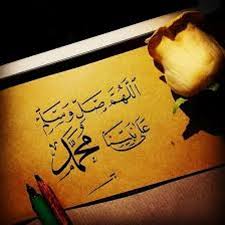 اللَّهُمَّ صَلِّ وَسَلِّم
عَلَى نَبِيِّنَا مُحَمَّد